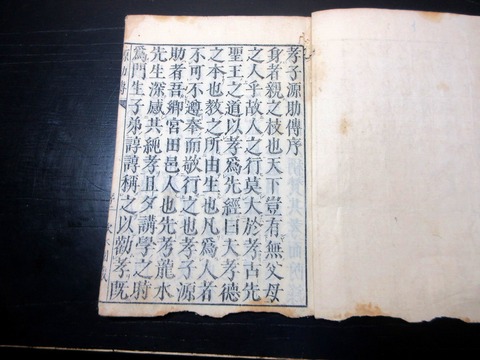 孝子源助傳序
身者親之枝也天下豈有無父母
之人乎故人之行莫大於孝古先
聖王之道以孝爲先經曰夫孝德
之本也敎之所由生也凡爲人者
不可不遵奉而敬行之也孝子源
助者吾鄉宮田邑人也先考龍水
先生深感其純孝且夕講學之時
爲門生子弟諄諄稱之以勤孝既